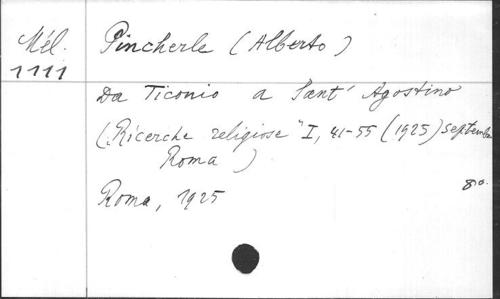 Mél. Pincherle (Alberto)
1111
Da Ticonio a Sant' Agostino
("Ricerche religiose" I, 41-55 (1925) septembre
Roma)
Roma, 1925
8o.